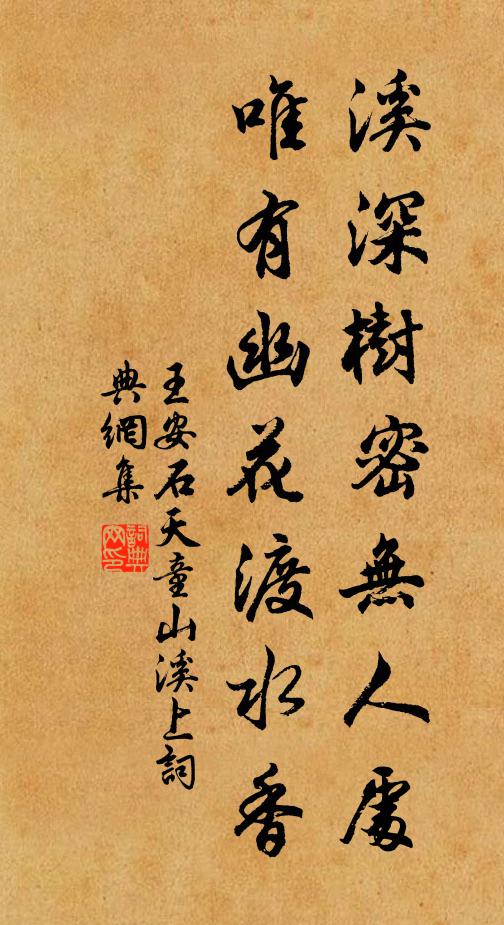 溪深樹密無人處
唯有幽花渡水香
王安石天童山溪上詞
典網集
詞典
网印